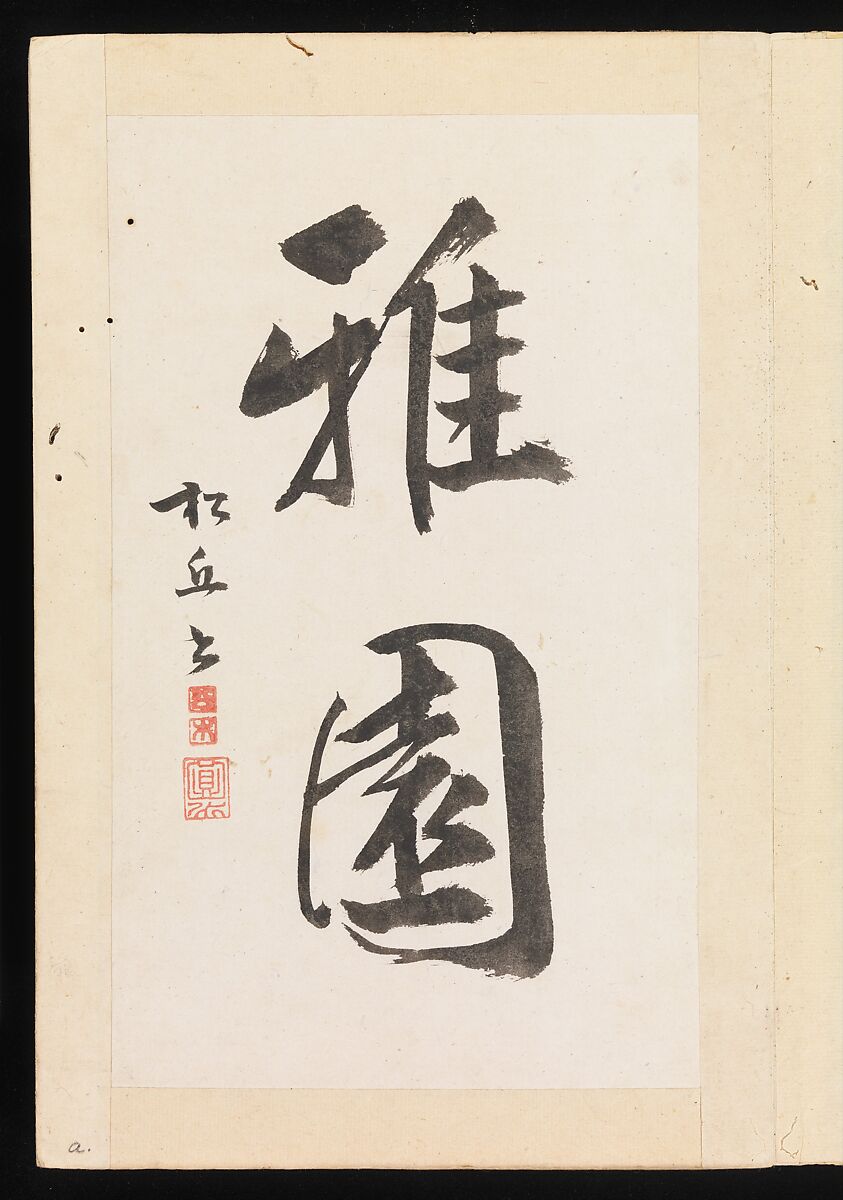 雅園
松丘
a.